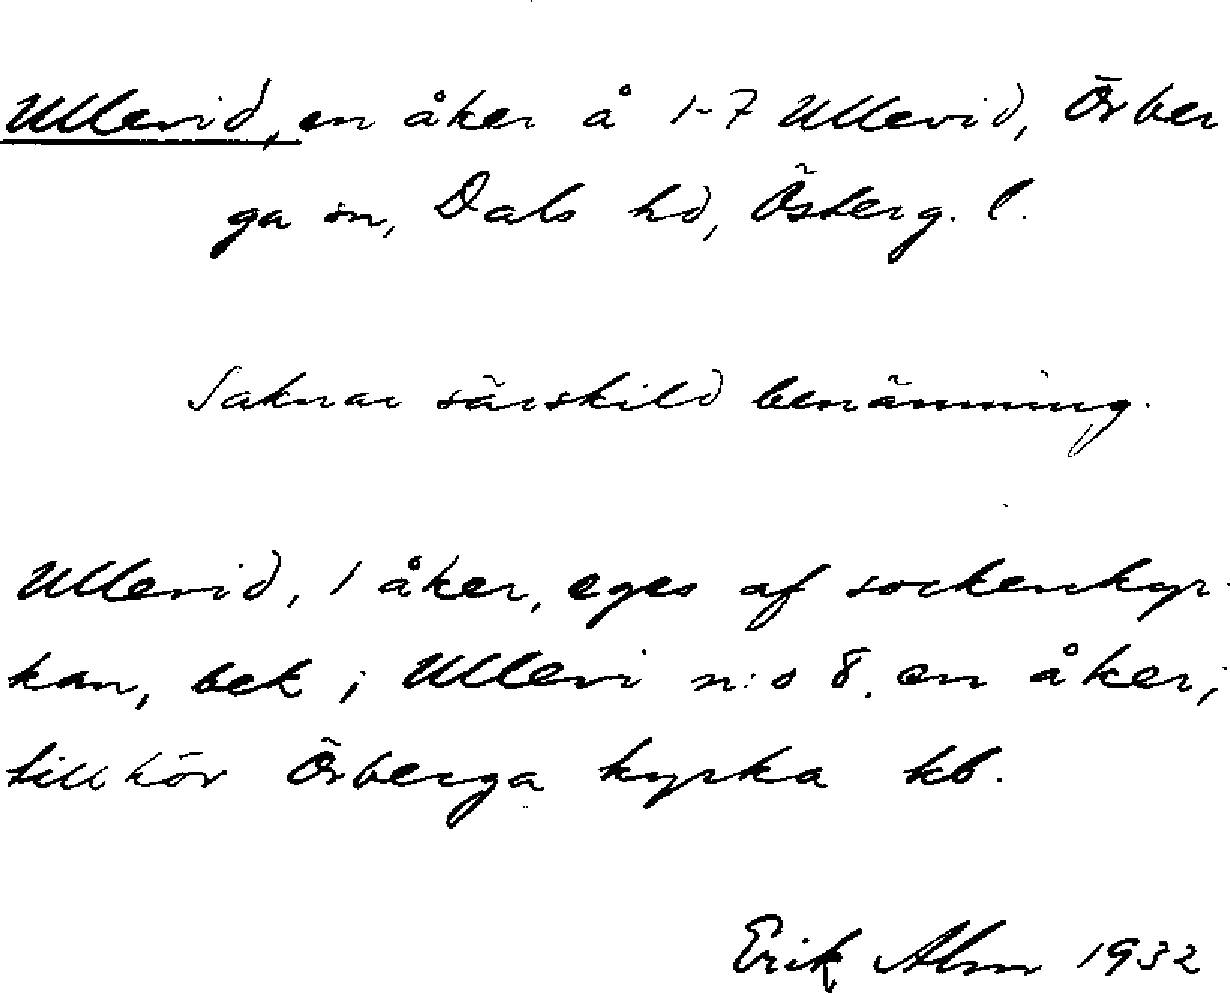 Ullevid, en åker å 1-7 Ullevid, Örber
ga sn, Dals hd, Österg. l.
Saknar särskild benämning.
Ullevid, 1 åker, eges af sockenkyr
kan, bek; Ullevi n:o 8. en åker;
tillhör Örberga kyrka kb.
Erik Alm 1932